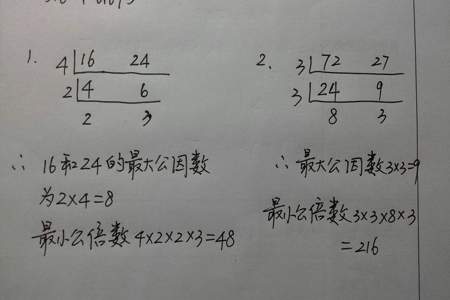 1. 4 16 24
2 4 6
2 3
∴ 16和24的最大公因数
为2×4=8
最小公倍数4×2×2×3=48
2. 3 72 27
3 24 9
8 3
∴ 最大公因数3×3=9
最小公倍数3×3×8×3
=216